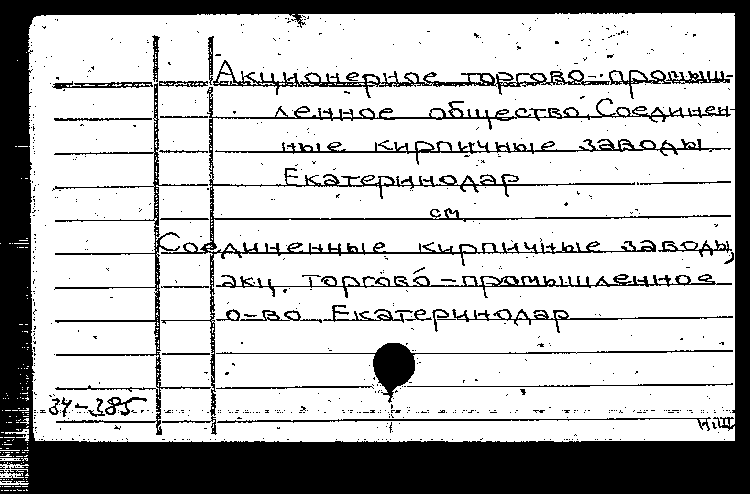 Акционерное торгово-промыш-
ленное общество, Соединен-
ные кирпичные заводы
Екатеринодар
см.
Соединенные кирпичные заводы,
акц. торгово-промышленное
о-во Екатеринодар
34-385